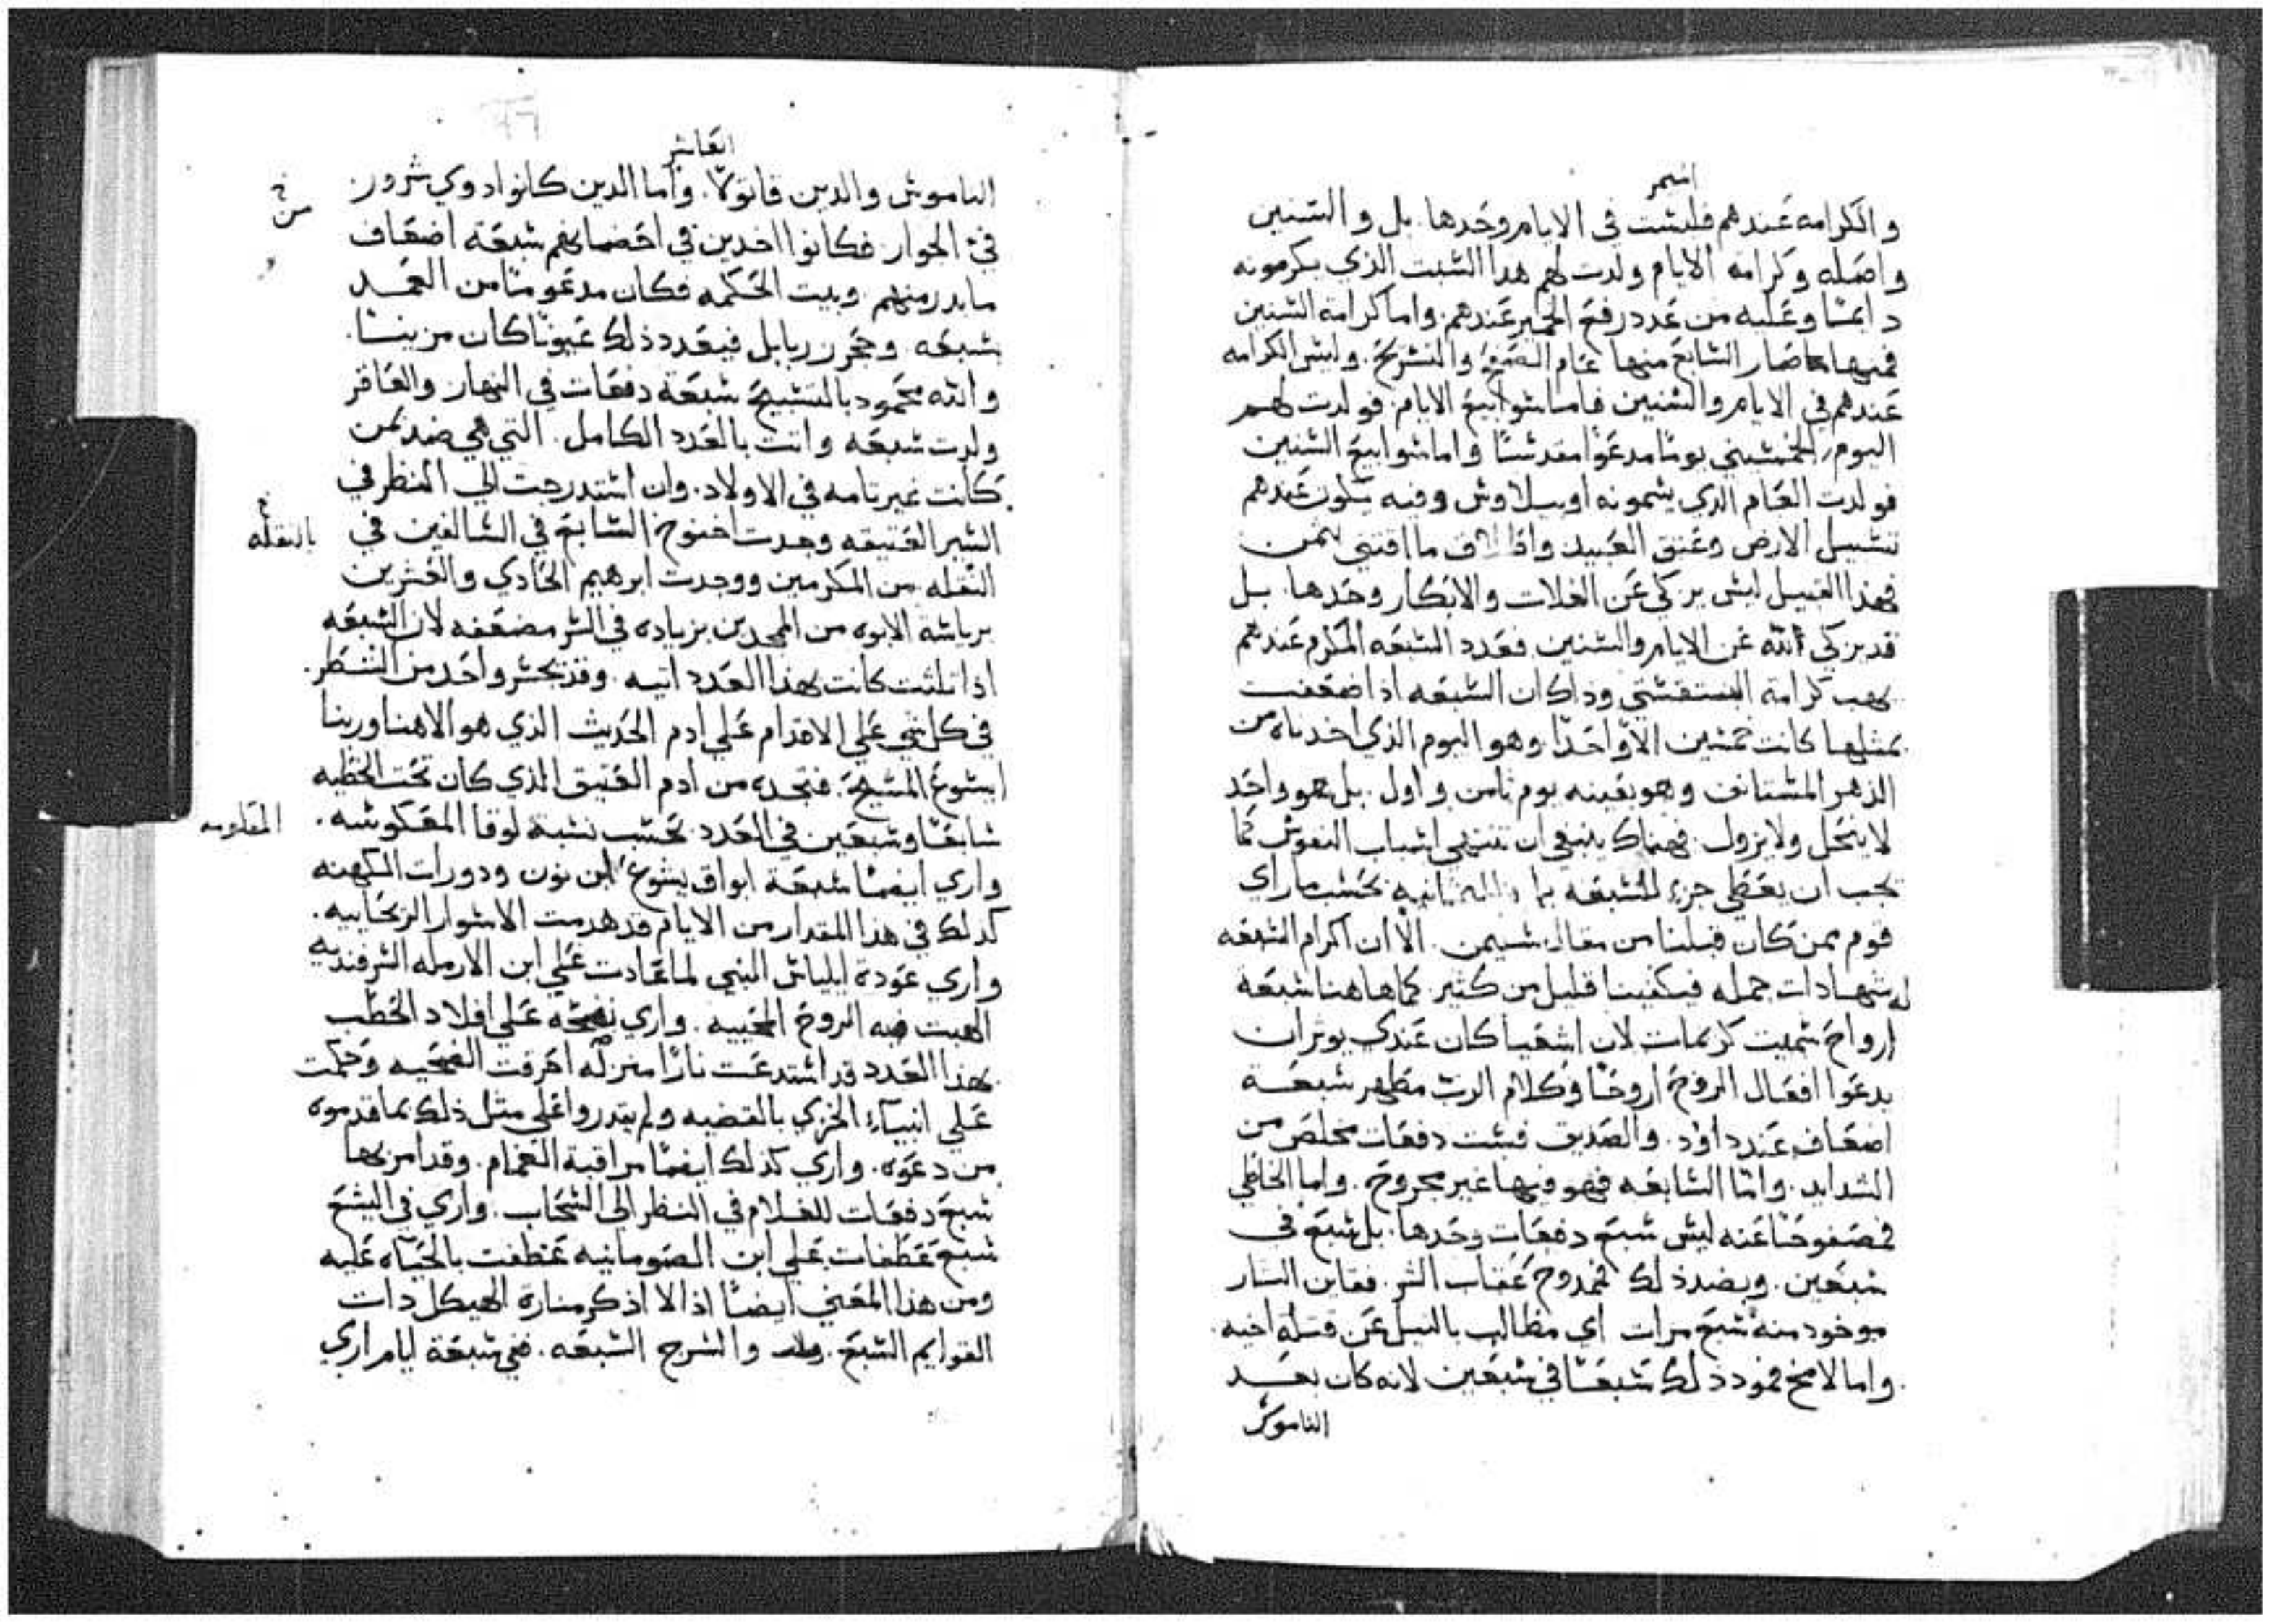 والكرامه عَندهم فليشت في الايام وحَدها. بل والسنين
واصَله وكرامة الايام ولدت لهم هدا السَبت الذي يكرمونه
دايمًا وعَليه من عَدد رفعَ الخمير عَندهم. واما كرامة السَنين
فمنها صَار السَابعَ منها عَام الصَفحَ والتسريحَ. وليسَ الكرامه
عَندهم في الايام والسَنين فاما سَوابيعَ الايام. فولدت لهم
اليوم الخمسَيني يومًا مدعَوًا مقدسًَا واما سَوابيعَ السَنين
فولدت العَام الذي يسمونه اوبيلاوسَ وفيه يكون عَندهم
تسَبيل الارض وعَتق العَبيد ما اقتني بثمن
فهذا القبيل ليسَ يزكي عَن الغلات والابكار وحَدها. بل
قد يزكي لله عَن الايام والسَنين. فعَدد السَبعَه المكرم عَندهم
يهب كرامة البنتقسَتي وذاك ان السَبعَه اذا ضعَفت
بمثلها كانت خمسَين الاّ واحَدًا وهو اليوم الذي اخدناه من
الدهر المسَتانف وهو بعَينه يوم ثامن واول. بل هو واحَد
لا ينحَل ولا يزول. فهناك ينبغي ان تنتهي اسَبات النفوسَ كما
يجب ان يعَطي جزء للسَبعَه حَسَب ما راي
قوم ممن كان قبلنا من مقال سَليمن. الا ان اكرام السَبعَه
له شهادات جمله فيكفينا قليل من كثير. كما هاهنا سَبعَة
ارواحَ سَميت كريمات لان اشعَيا كان عَندي يوثر ان
يدعَوا افعَال الروحَ اروحًَا وكلام الربّ مطَهر سَبعَة
اضعَاف عَند داوُد. والصَديق فسَت دفعَات مخلصَ من
الشدايد. وامّا السَابعَه فهو فيها غير مجروحَ. واما الخاطَي
فمصَفوحًَا عَنه ليسَ سَبعَ دفعَات وحَدها. بل سَبعَ في
سَبعَين. وبضد ذلك فممدوحَ عَقاب الشر. فقاين السَار
موخود منه سَبعَ مرات اي مطَالب بالنيل عَن قتله اخيه.
واما لامخ فمود ذلك سَبعًَا في سَبعَين لانه كان بعَد
الناموسَ
العَاشر
الناموسَ والدين قاتولاً. واما الدين كانوا دوي شرور
في الجوار. فكانوا اخدين في احَضانهم سَبعَة اضعَاف
ما بدر منهم. وبيت الحَكمه فكان مدعَومًا من العَمد
بسَبعَه. وحَجر زربابل فبعَدد ذلك عَيونًا كان مزينًا.
والله محَمود بالتسَبيحَ سَبعَة دفعَات في النهار والعَاقر
ولدت سَبعَه واتت بالعَدد الكامل. التي هي ضد لمن
كانت غير تامه في الاولاد. وان اسَتدرجت الي النظَر في
السَير العَتيقه وجدت اخنوخ السَابعَ في السَالفين في
بالنقله
النقله من المكرمين ووجدت ابرهيم الحَادي والعَشرين
برياسَة الابوه من الممجدين بزياده في السَر مضعَفه لان السَبعَه
اذا ثلثت كانت بهذا العَدد اتيه. وقد يجسَر واحَد من النشطَر.
في كل شي عَلي الاقدام عَلي ادم الحَديث الذي هو الاهنا وربنا
ايسَوعَ المسَيحَ. فتجده من ادم العَتيق الذي كان تحَت الخطَيه
سَابعًَا وسَبعَين في العَدد بحَسَب نسَبة لوقا المعَكوسَه.
المقلوبه
واري ايضًا سَبعَة ابواق يشوعَ ابن نون ودورات الكهنه
كدلك في هذا المقدار من الايام قد هدمت الاسَوار الريحَانيه.
واري عَودة ايلياسَ النبي لما عَادت عَلي ابن الارمله السَرفنديه
الهبت فيه الروحَ المحَييه. واري نضحَه عَلي افلاد الحَطَب
بهذا العَدد قد اسَتدعَت نارًا منزله احَرقت الضحَيه وحَكمت
عَلي انبيآء الخزي بالقضيه ولم يقدروا عَلي مثل ذلك بما قدموه
من دعَوه. واري كدلك ايضًا مراقبة الغمام. وقد امر بها
سَبعَ دفعَات للغلام في النظَر الي السَحَاب. واري في اليسَعَ
سَبعَ عَطَفات عَلي ابن الصَومانيه عَطَفت بالحَيآه عَليه
ومن هذا المعَني ايضًا اذا لا اذكر منارة الهيكل دات
القوايم السَبعَ. والسَرج السَبعَه. ففي سَبعَة ايام اري